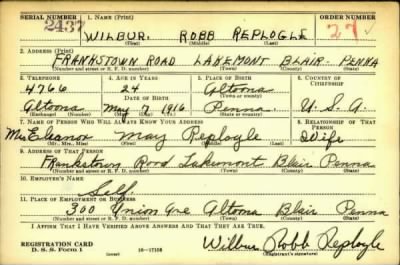 SERIAL NUMBER 1. NAME (Print) ORDER NUMBER
2437 WILBUR. ROBB REPLOGLE 27
(First) (Middle) (Last)
2. ADDRESS (Print)
FRANKSTOWN ROAD LAKEMONT BLAIR. PENNA
(Number and street or R. F. D. number) (Town) (County) (State)
3. TELEPHONE 4. AGE IN YEARS 5. PLACE OF BIRTH 6. COUNTRY OF CITIZENSHIP
4766 24 Altoona
(Town or county)
Altoona May 7 1916 Penna. U. S. A.
(Exchange) (Mo.) (Day) (Yr.) (State or country)
7. NAME OF PERSON WHO WILL ALWAYS KNOW YOUR ADDRESS 8. RELATIONSHIP OF THAT PERSON
Mrs Eleanor May Replogle Wife
(Mr., Mrs., Miss) (First) (Middle) (Last)
9. ADDRESS OF THAT PERSON
Frankstown Road Lakemont Blair Penna
(Number and street or R. F. D. number) (Town) (County) (State)
10. EMPLOYER'S NAME
Self.
11. PLACE OF EMPLOYMENT OR BUSINESS
300 Union Ave Altoona Blair Penna
(Number and street or R. F. D. number) (Town) (County) (State)
I AFFIRM THAT I HAVE VERIFIED ABOVE ANSWERS AND THAT THEY ARE TRUE.
REGISTRATION CARD
D. S. S. Form 1 16-17105 Wilbur Robb Replogle
(Registrant's signature)